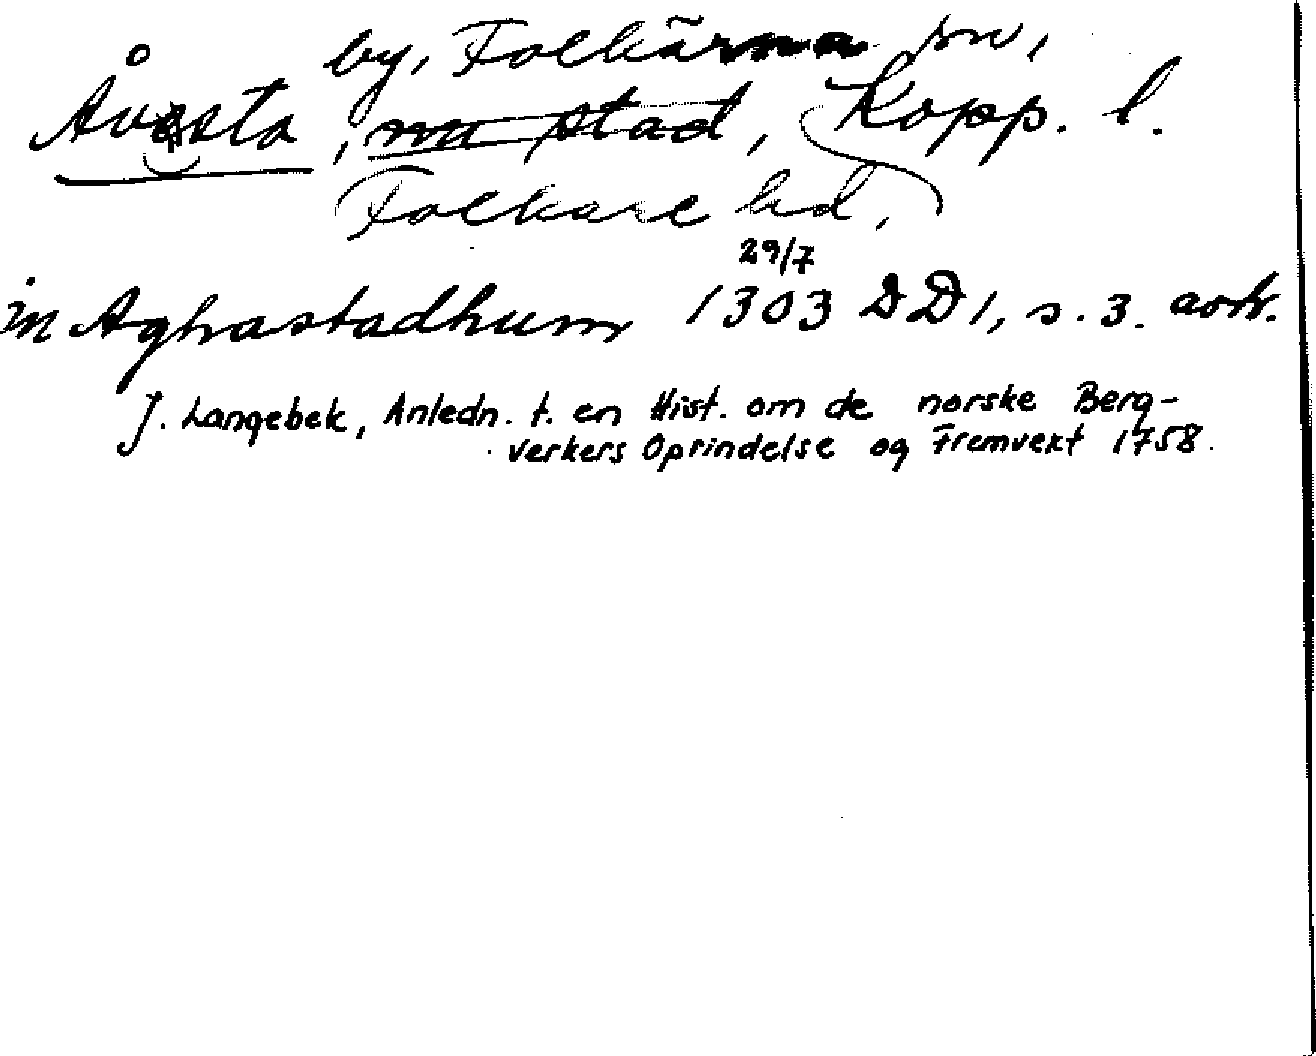 by, Folkärna sn,
Åvesta, nu stad, Kopp. l.
Folkare hd.
29/7
in Aghastadhum 1303 DD1, s. 3. avskr.
J. Langebek, Anledn. t. en Hist. om de norske Berg-
verkers Oprindelse og Fremvext 1758.